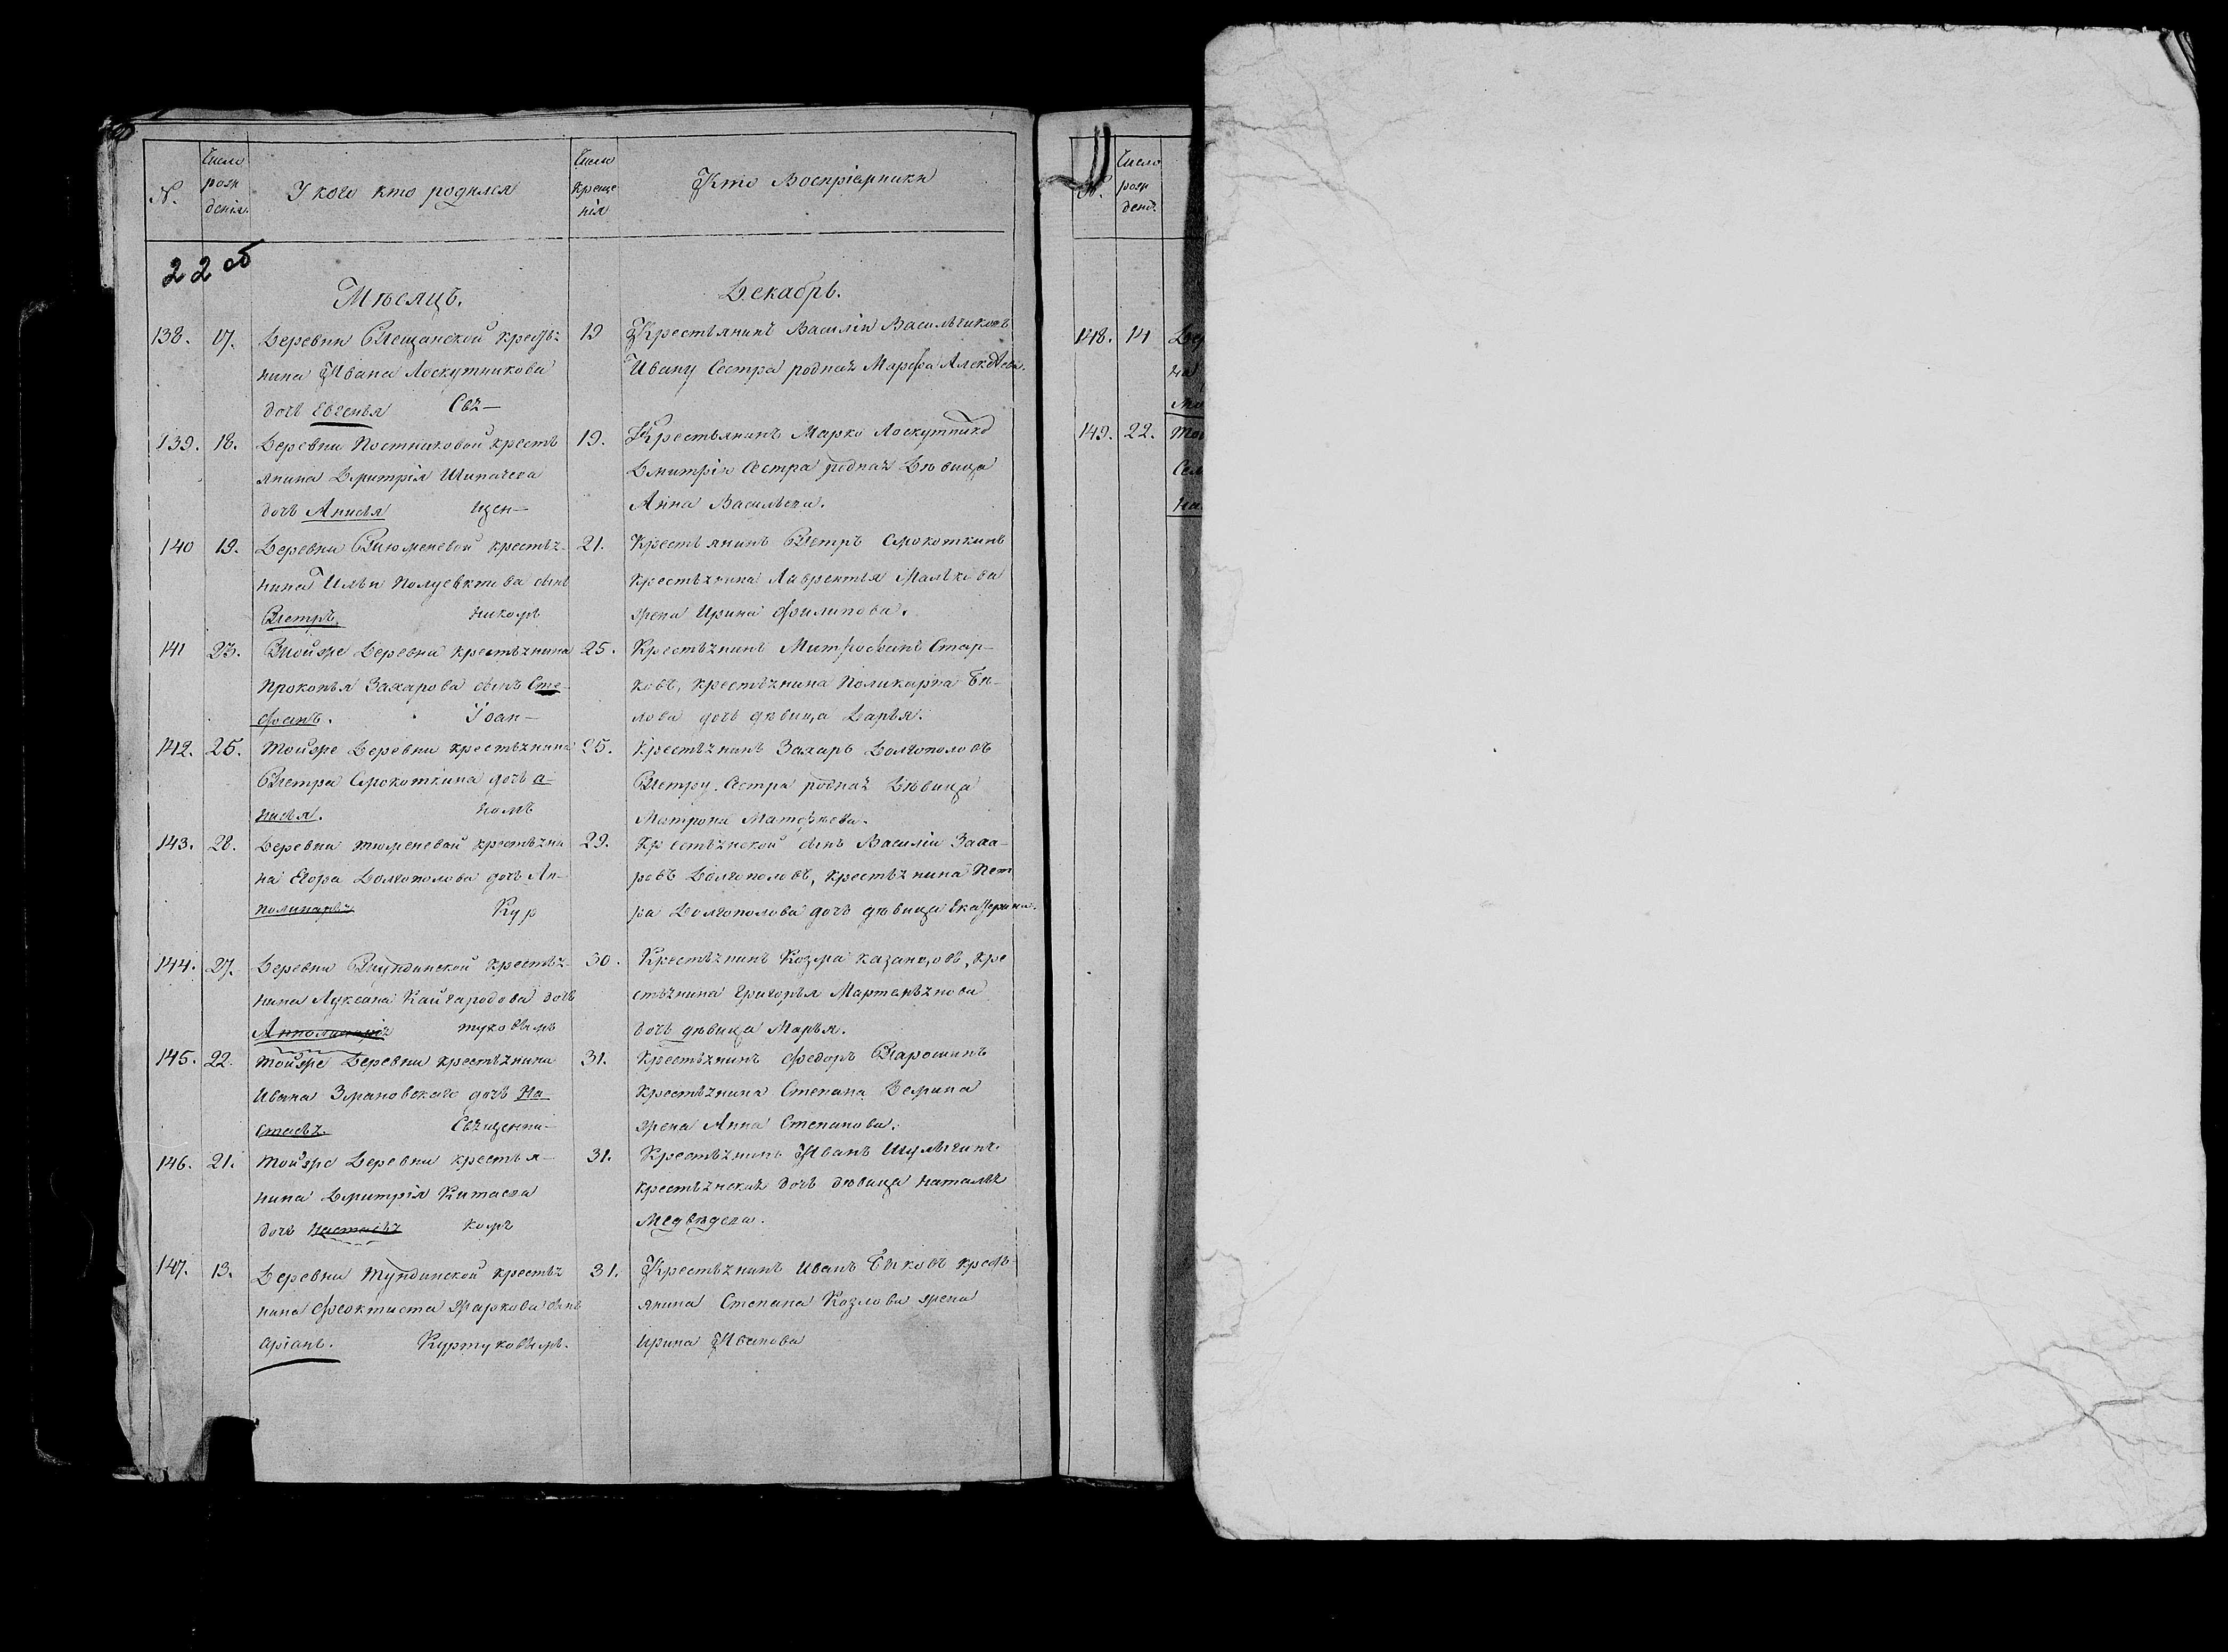 №.
Число рождения.
У кого кто родился
Число крещения
Кто Восприемники
22 об
Мѣсяцъ.
Декабрь.
138. 17. Деревни Плещанской Крестья-
нина Ивана Лоскутникова
дочь Евгенья Свя—
19 Крестьянинъ Василій Васильчиковъ
Ивану Сестра родная Марфа
139. 18. Деревни Постниковой крестъ
янина Дмитрія Шипачева
дочь Анисья щен—
19. Крестьянинъ Марко Лоскутник
Дмитрія Сестра родная Дѣвица
Анна Васильева.
140 19. Деревни Тюменевой крестья-
нина Ильи Полуевктова сынъ
Петръ. Никомъ
21. Крестьянинъ Петръ Сорокоткинъ
Крестьянина Лаврентья Малкова
жена Ирина Филипова.
141 23. Тойже Деревни крестьянина
Прокопья Захарова сынъ Сте-
фанъ. Іоан—
25. Крестьянинъ Митрофанъ Стар-
ковъ, крестьянина Поликарпа Бѣ-
лова дочь дѣвица Дарья.
142. 25. Тойже Деревни крестьянина
Петра Сорокоткина дочь а-
нисья. номъ
25. Крестьянинъ Захаръ Долгополовъ
Петру. Сестра родная Дѣвица
Матрона Матфеева.
143. 28. Деревни тюменевой крестьяни
на Егора Долгополова дочь Ап-
полинарья Кур
29. Крестьянской сынъ Василій Заха-
ровъ Долгополовъ, крестьянина Пет
ра Долгополова дочь дѣвица Екатерина.
144. 27. Деревни Тундинской Крестья-
нина Луксана Кайгародова дочь
туковымъ
30. Крестьянинъ Козма Казанцовъ, Кре
стьянина Григорья Мартемьянова
дочь дѣвица Марья.
145. 22. Тойже Деревни крестьянина
Ивана Змановскаго дочь На
стасья. Священни—
31. Крестьянинъ Федоръ Паромшинъ
Крестьянина Степана Демина
жена Анна Степанова.
146. 21. Тойже Деревни крестья—
нина Дмитрія Китаева
дочь Настасья комъ
31. Крестьянинъ Иванъ Шульгинъ.
крестьянская дочь дѣвица Наталья
Медвѣдева.
147. 13. Деревни Тундинской крестья
нина Феоктиста Жаркова сынъ
аріанъ. Куртуковымъ.
31. Крестьянинъ Иванъ Быковъ крестъ
янина Степана Козлова жена
Ирина Иванова
№.
Число рожденія.
148. 14 Дер
на
149. 22. Той